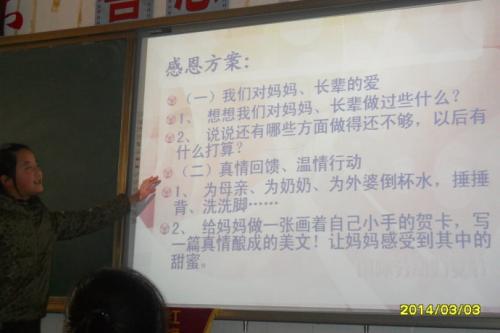 感恩方案：
（一）我们对妈妈、长辈的爱
1、 想想我们对妈妈、长辈做过些什么？
2、 说说还有哪些方面做得还不够，以后有
什么打算？
（二）真情回馈、温情行动
1、 为母亲、为奶奶、为外婆倒杯水，捶捶
背、洗洗脚……
2、 给妈妈做一张画着自己小手的贺卡，写
一篇真情酿成的美文！让妈妈感受到其中的
甜蜜。
2014/03/03